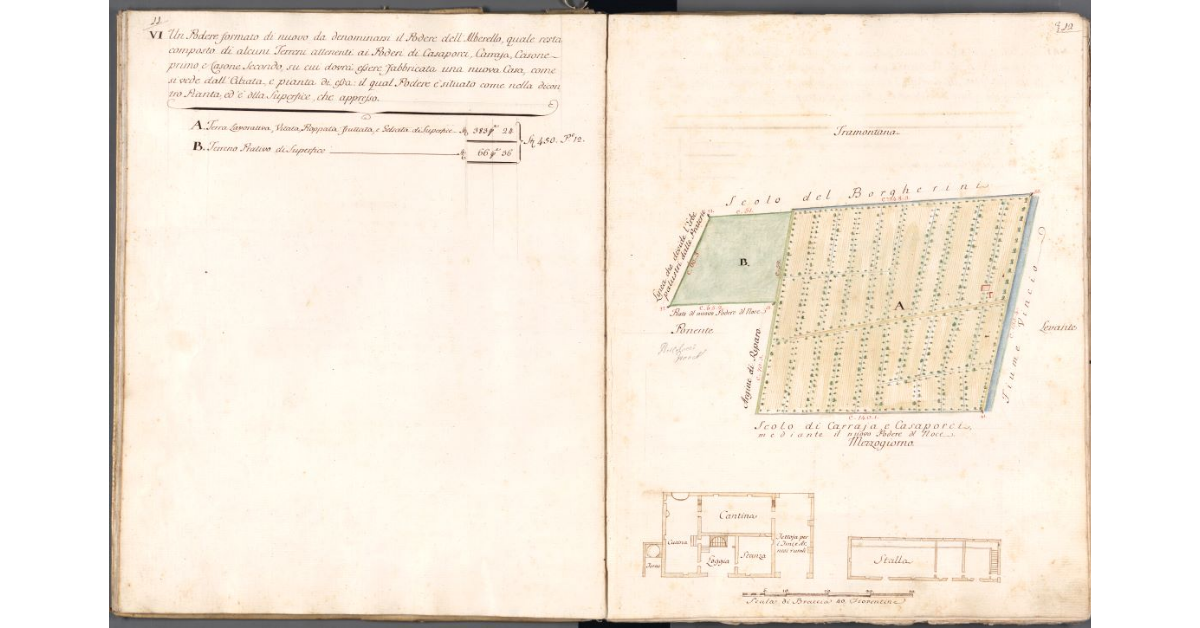 11
VI Un Podere formato di nuovo da denominarsi il Podere dell'Alberello, quale resta
composto di alcuni Terreni attenenti ai Poderi di Casaporci, Carraja, Casone
primo e Casone Secondo, su cui dovrà essere fabbricata una nuova Casa, come
si vede dall'Alzata, e pianta di essa: il qual Podere è situato come nella decon
tro Pianta, ed è della Superfice, che appresso.
A. Terra Lavorativa, Vitata, Pioppata, fruttata, e Gelsata di Superfice 383 24
B. Terreno Prativo di Superfice 66 36
450. 12.
Tramontana
Scolo del Borgherini
Linea che divide l'Erbe
palustri dalle Pasture
B.
A
Prati del nuovo Podere del Noce
Ponente
Argine di Riparo
Fiume Vincio
Levante
Scolo di Carraja e Casaporci
mediante il nuovo Podere del Noce
Mezzogiorno
Cantina
Cucina
Loggia
Stanza
Tettoja per
Forno
Stalla
Scala di Braccia 20 Fiorentine